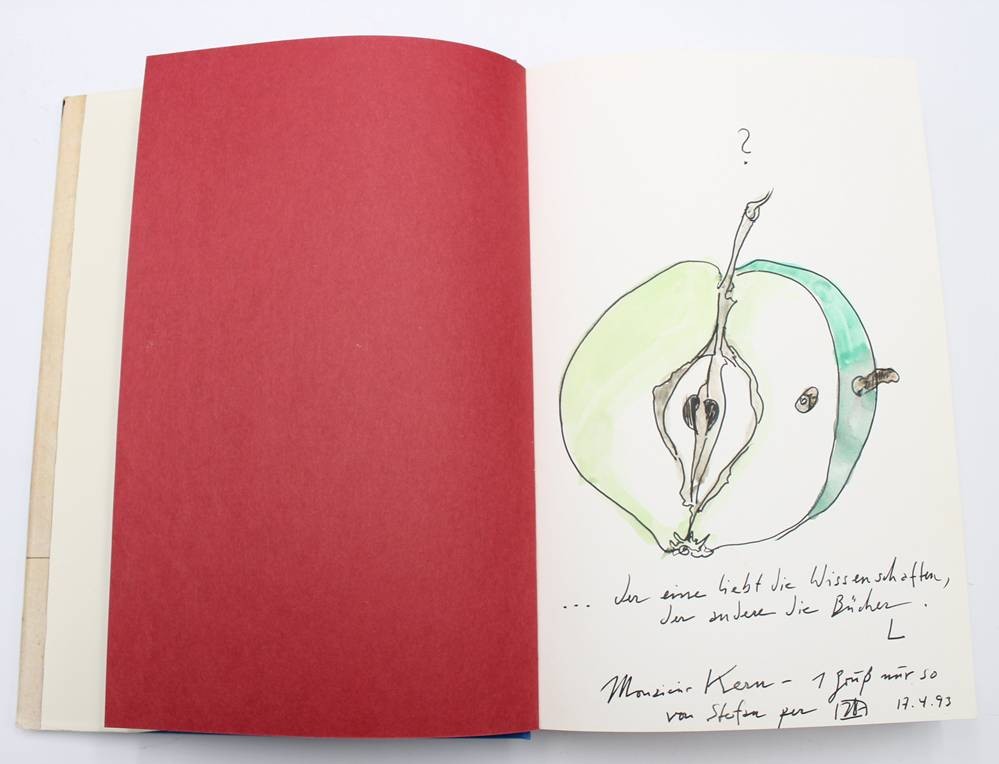 ?
... der eine liebt die Wissenschaften,
der andere die Bücher.
L
Monsieur Kern - 1 Gruß nur so
von Stefan per
17.4.93